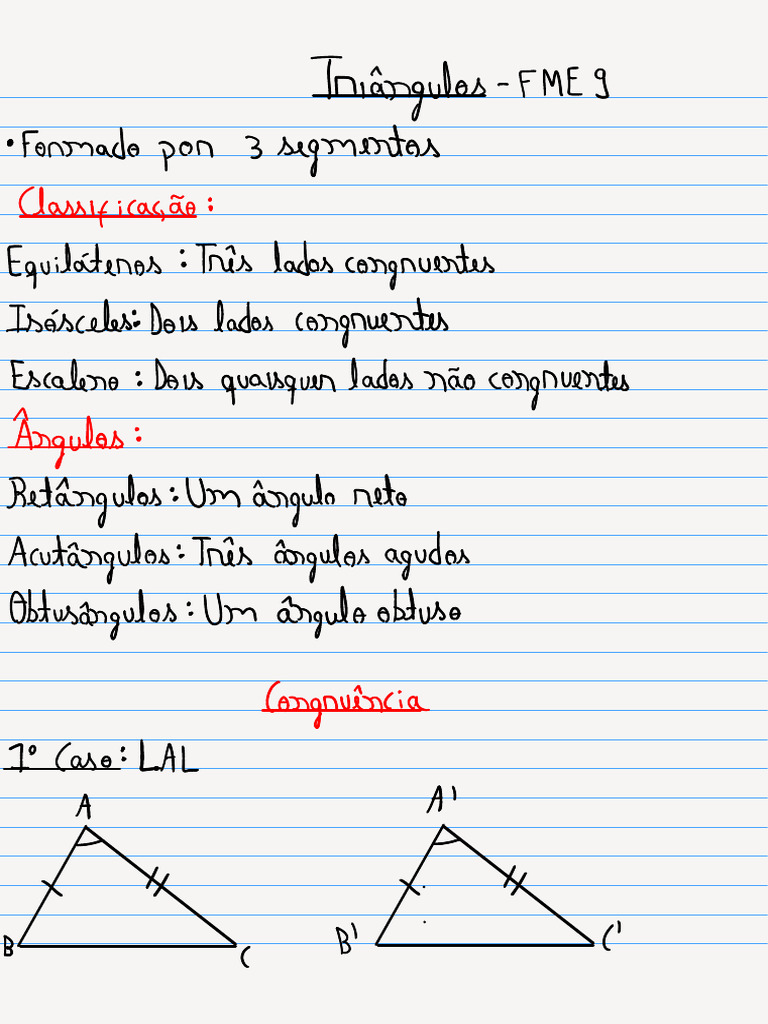 Triângulos - FME 9
• Formado por 3 segmentos
Classificação:
Equiláteros: Três lados congruentes
Isósceles: Dois lados congruentes
Escaleno: Dois quaisquer lados não congruentes
Ângulos:
Retângulos: Um ângulo reto
Acutângulos: Três ângulos agudos
Obtusângulos: Um ângulo obtuso
Congruência
1º Caso: LAL
A A'
B C B' C'